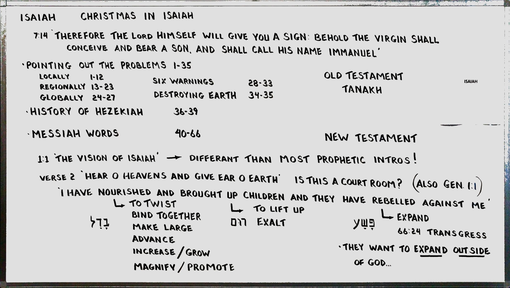 ISAIAH CHRISTMAS IN ISAIAH
7:14 'THEREFORE THE LORD HIMSELF WILL GIVE YOU A SIGN: BEHOLD THE VIRGIN SHALL
CONCEIVE AND BEAR A SON, AND SHALL CALL HIS NAME IMMANUEL'
·POINTING OUT THE PROBLEMS 1-35
LOCALLY 1-12
REGIONALLY 13-23
GLOBALLY 24-27
SIX WARNINGS 28-33
DESTROYING EARTH 34-35
OLD TESTAMENT
TANAKH
ISAIAH
·HISTORY OF HEZEKIAH 36-39
·MESSIAH WORDS 40-66
NEW TESTAMENT
1:1 'THE VISION OF ISAIAH' → DIFFERANT THAN MOST PROPHETIC INTROS!
VERSE 2 'HEAR O HEAVENS AND GIVE EAR O EARTH' IS THIS A COURT ROOM? (ALSO GEN. 1:1)
'I HAVE NOURISHED AND BROUGHT UP CHILDREN AND THEY HAVE REBELLED AGAINST ME'
גָּדַל
TO TWIST
BIND TOGETHER
MAKE LARGE
ADVANCE
INCREASE/GROW
MAGNIFY/PROMOTE
רום
TO LIFT UP
EXALT
פָּשַׁע
EXPAND
66:24 TRANSGRESS
·THEY WANT TO EXPAND OUTSIDE
OF GOD...